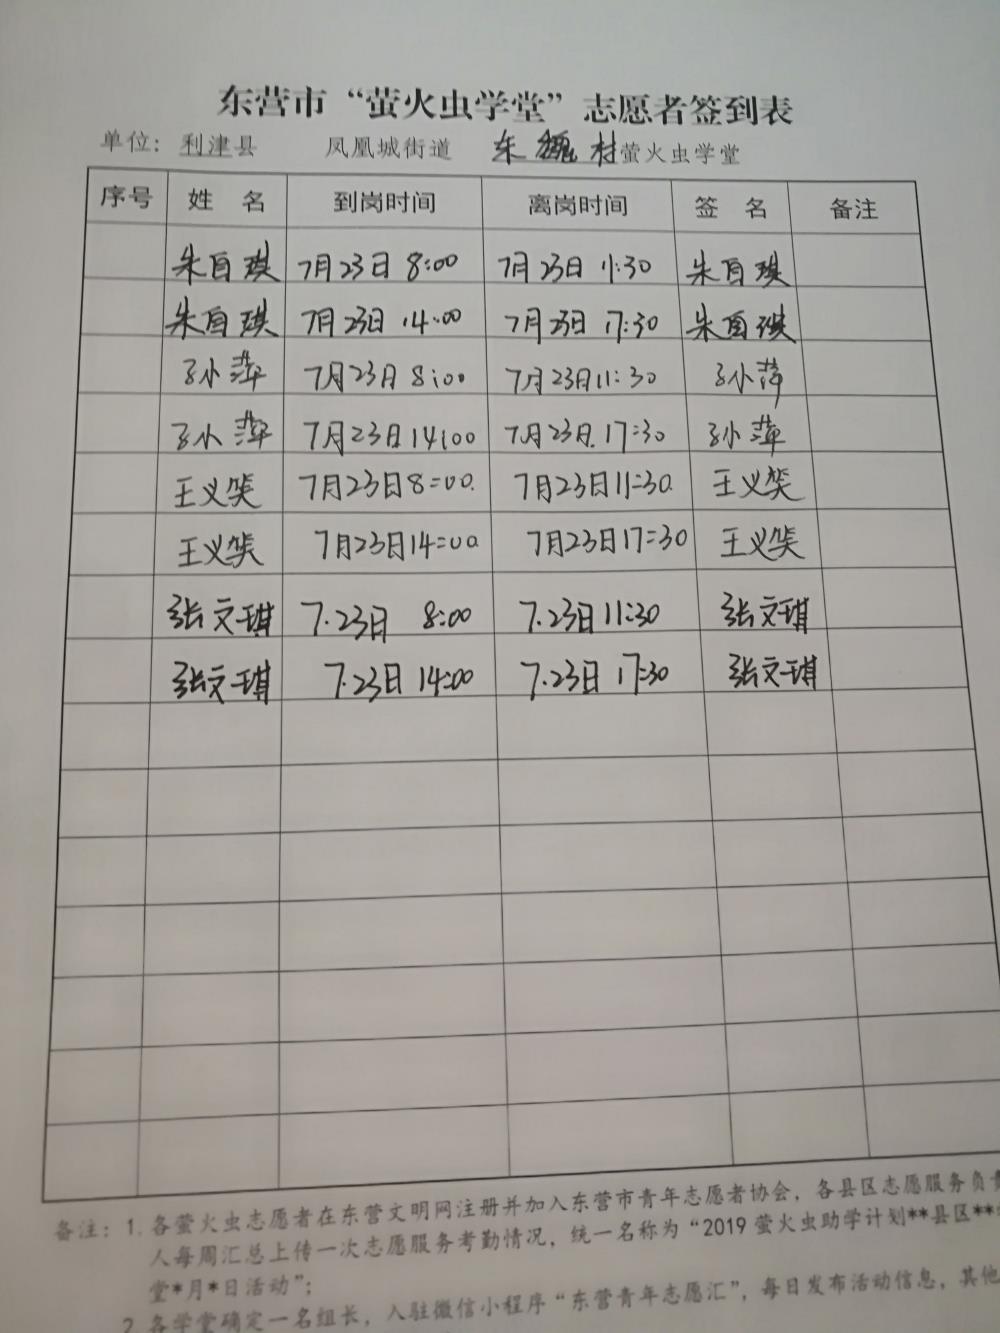 东营市“萤火虫学堂”志愿者签到表
单位：利津县 凤凰城街道 东 村萤火虫学堂
序号 姓 名 到岗时间 离岗时间 签 名 备注
朱自琪 7月23日 8:00 7月23日 11:30 朱自琪
朱自琪 7月23日 14:00 7月23日 17:30 朱自琪
孙小萍 7月23日 8:00 7月23日11:30 孙小萍
孙小萍 7月23日14:00 7月23日.17:30 孙小萍
王义笑 7月23日8:00. 7月23日11:30. 王义笑
王义笑 7月23日14:00 7月23日17:30 王义笑
张文琪 7.23日 8:00 7.23日 11:30 张文琪
张文琪 7.23日 14:00 7.23日 17:30 张文琪
备注：1. 各萤火虫志愿者在东营文明网注册并加入东营市青年志愿者协会，各县区志愿服务负责
人每周汇总上传一次志愿服务考勤情况，统一名称为“2019 萤火虫助学计划**县区**
堂*月*日活动”；
2. 各学堂确定一名组长，入驻微信小程序“东营青年志愿汇”，每日发布活动信息，其他